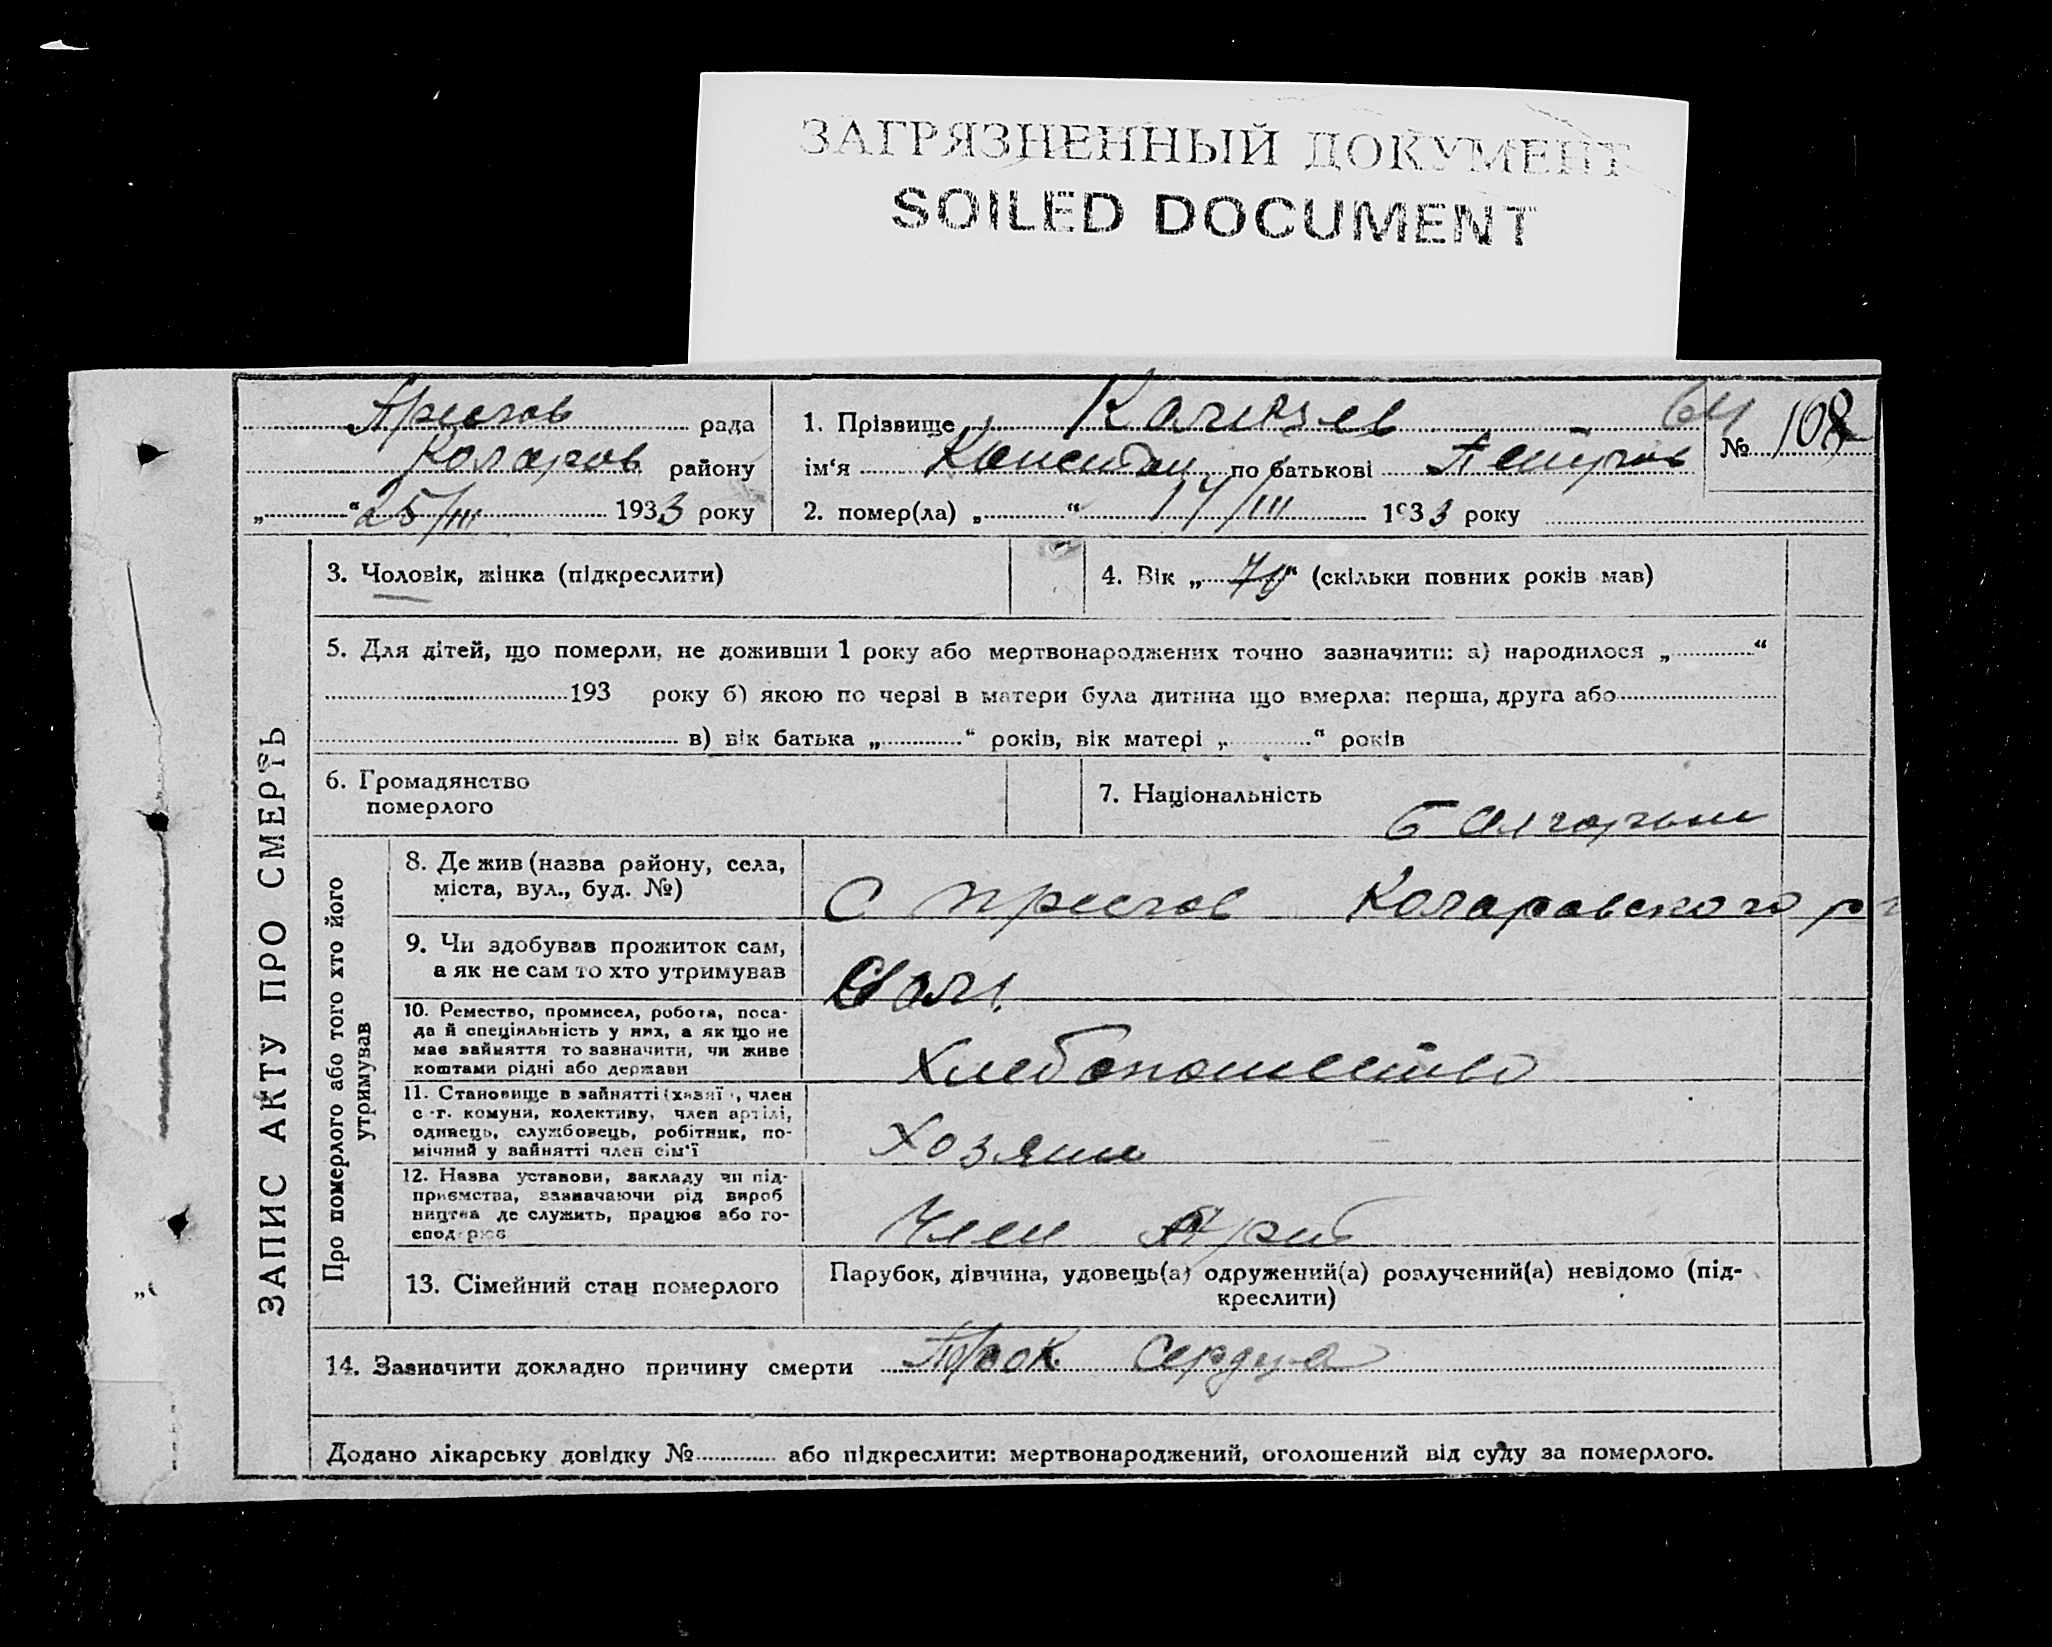 ЗАГРЯЗНЕННЫЙ ДОКУМЕНТ
SOILED DOCUMENT
Преслав рада
Коларов району
„ “ 25/III 1933 року
64
№ 108
1. Прізвище
ім‘я Констан по батькові Петров
2. помер(ла) „ “ 14/III 1933 року
ЗАПИС АКТУ ПРО СМЕРТЬ
3. Чоловік, жінка (підкреслити)
4. Вік „ “ (скільки повних років мав)
5. Для дітей, що померли, не доживши 1 року або мертвонароджених точно зазначити: а) народилося „ “
193 року б) якою по черзі в матери була дитина що вмерла: перша, друга або
в) вік батька „ “ років, вік матері „ “ років
6. Громадянство
померлого
7. Національність Балгарын
Про померлого або того хто його
утримував
8. Де жив (назва району, села,
міста, вул., буд. №)
С Преслав Коларовского р
9. Чи здобував прожиток сам,
а як не сам то хто утримував
Сам
10. Ремество, промисел, робота, поса-
да й спеціяльність у них, а якщо не
має зайняття то зазначити, чи живе
коштами рідні або держави
Хлебопашество
11. Становище в зайнятті (хазяї , член
с -г. комуни, колективу, член артілі,
одинець, службовець, робітник, по-
мічний у зайнятті член сім‘ї
Хозяин
12. Назва установи, закладу чи під-
приємства, зазначаючи рід вироб
ництва де служить, працює або го-
сподарює
Член
13. Сімейний стан померлого
Парубок, дівчина, удовець(а) одружений(а) розлучений(а) невідомо (під-
креслити)
14. Зазначити докладно причину смерти Порок Сердца
Додано лікарську довідку № або підкреслити: мертвонароджений, оголошений від суду за померлого.